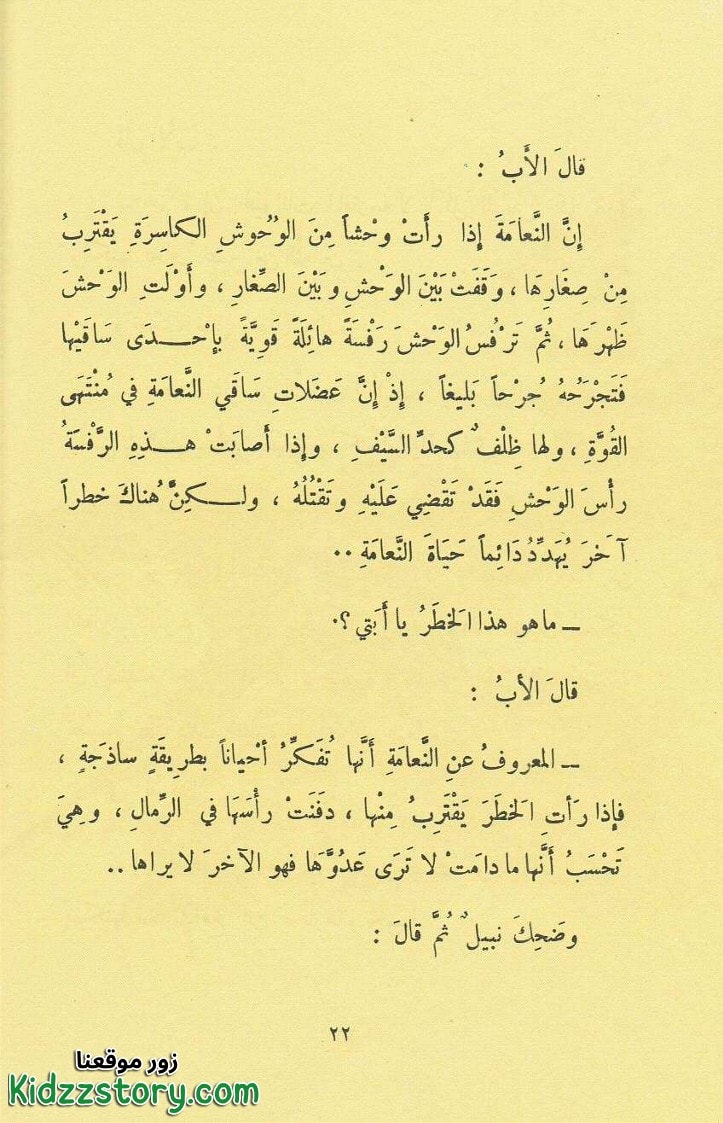 قالَ الأَبُ :
إِنَّ النَّعامَةَ إِذا رأَتْ وحْشاً مِنَ الوُحُوشِ الكاسِرَةِ يَقْتَرِبُ
مِنْ صِغَارِهَا ، وَقَفَتْ بَيْنَ الوَحْشِ وبَيْنَ الصِّغارِ ، وأَوْلَتِ الوَحْشَ
ظَهْرَهَا ، ثُمَّ تَرْفُسُ الوَحْشَ رَفْسَةً هائِلَةً قويَّةً بإِحْدَى سَاقَيْها
فَتَجْرَحُهُ جُرْحاً بَلِيغاً ، إِذْ إِنَّ عَضَلاتِ ساقَي النَّعامَةِ في مُنْتَهَى
القُوَّةِ ، ولها ظِلْفٌ كحدِّ السَّيْفِ ، وإِذا أَصابَتْ هذِهِ الرَّفْسَةُ
رأْسَ الوَحْشِ فَقَدْ تَقْضِي عَلَيْهِ وتَقْتُلُهُ ، ولكِنَّ هُناكَ خطراً
آخَرَ يُهَدِّدُ دَائِماً حَيَاةَ النَّعامَةِ ..
ـ ماهو هذا الَخطَرُ يا أَبَتي ؟.
قالَ الأبُ :
ـ المعروفُ عنِ النَّعامَةِ أَنَّها تُفَكِّرُ أَحْياناً بطرِيقَةٍ ساذجَةٍ ،
فإِذا رَأتِ الَخطَرَ يَقْتَرِبُ مِنْها ، دفَنَتْ رأْسَهَا في الرِّمالِ ، وهِيَ
تَحْسَبُ أَنَّها مادامَتْ لا تَرَى عَدُوَّهَا فهو الآخرَ لا يراها ..
وضَحِكَ نبيلٌ ثُمَّ قالَ :
٢٢
زور موقعنا
Kidzzstory.com